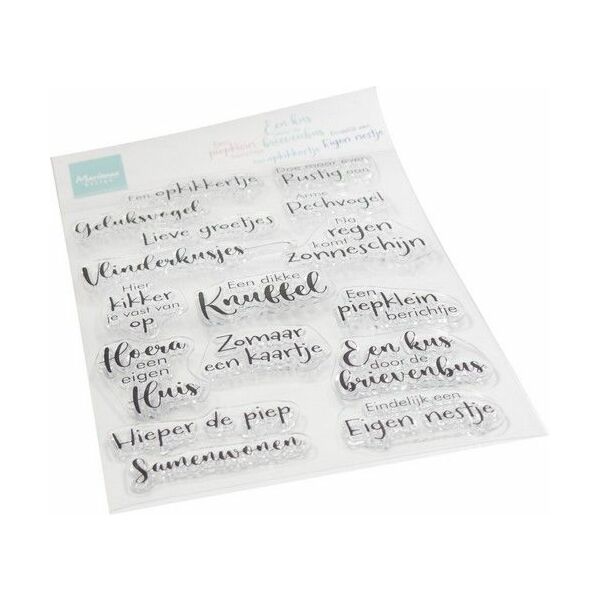 Een kus
door de
brievenbus
piepklein
Eigen nestje
Marianne
DESIGN
Een opkikkertje
Doe maar even
Rustig aan
Geluksvogel
Arme
Pechvogel
Lieve groetjes
Na
regen
komt
zonneschijn
Vlinderkusjes
Hier
kikker
je vast van
op
Een dikke
Knuffel
Een
piepklein
berichtje
Hoera
een
eigen
Huis
Zomaar
een kaartje
Een kus
door de
brievenbus
Hieper de piep
Eindelijk een
Eigen nestje
Samenwonen